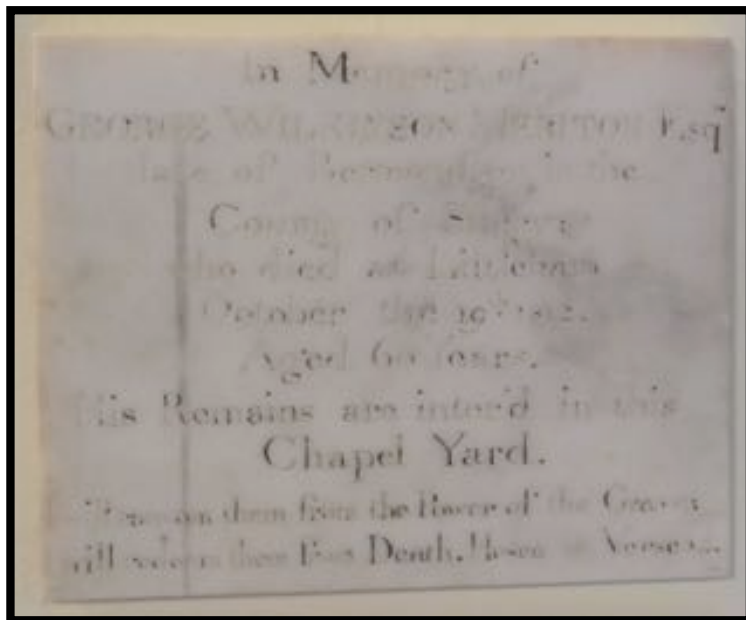 In Memory of
GEORGE WILKINSON Esqr
late of in the
County of Surrey
who died at
October the
Aged 60 Years.
His Remains are inter'd in this
Chapel Yard.
them from the Power of the Grave
will redeem them from Death. Hosea Verse